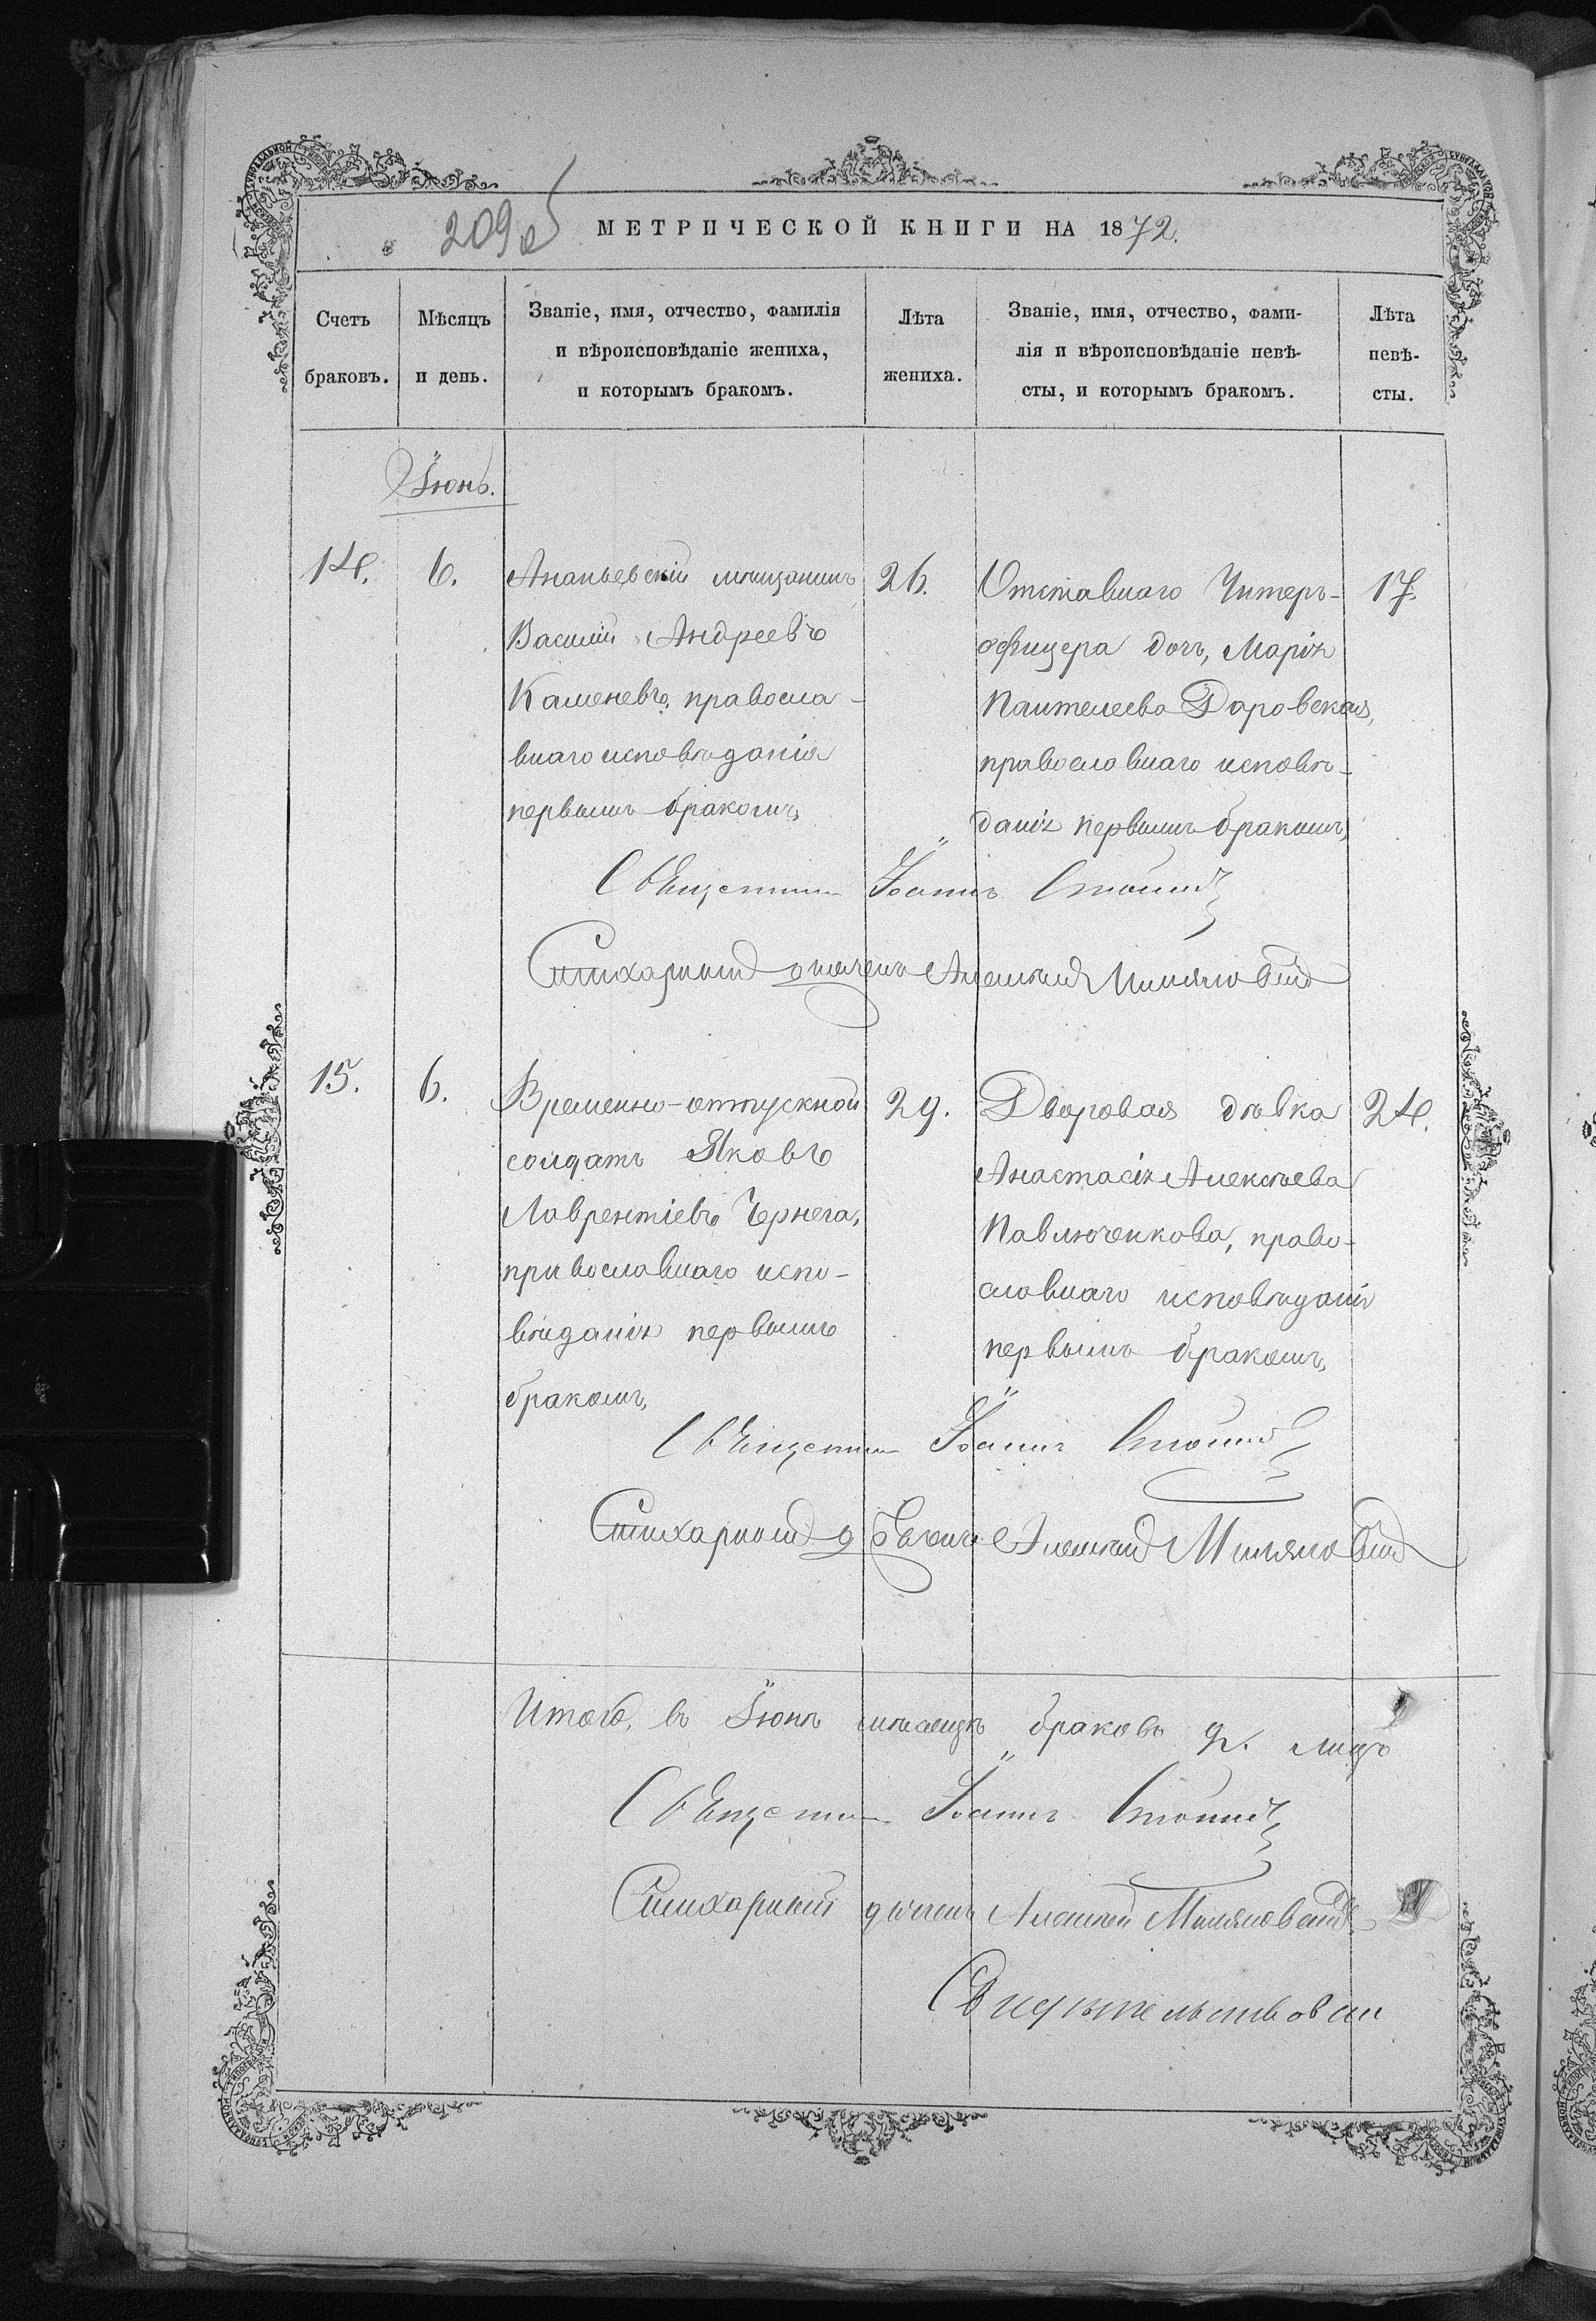 209об
МЕТРИЧЕСКОЙ КНИГИ НА 1872.
Счетъ браковъ.
Мѣсяцъ и день.
Званіе, имя, отчество, фамилія
и вѣроисповѣданіе жениха,
и которымъ бракомъ.
Лѣта жениха.
Званіе, имя, отчество, фами-
лія и вѣроисповѣданіе невѣ-
сты, и которымъ бракомъ.
Лѣта невѣ-
сты.
Іюнь.
14.
6.
Ананьевскій мѣщанинъ
Василій Андреевъ
Каменевъ, правосла-
внаго исповѣданія
первымъ бракомъ,
26.
Отставнаго Унтеръ-
офицера дочь, Марія
Пантелеева Даровская,
православнаго исповѣ-
данія первымъ бракомъ,
17.
Священникъ Іоаннъ
Стихарный дьячекъ Алексѣй
15.
6.
Временно-отпускной
солдатъ Яковъ
Лаврентіевъ Чернега,
православнаго испо-
вѣданія первымъ
бракомъ,
29.
Дворовая дѣвка
Анастасія Алексѣева
Павлюченкова, право-
славнаго исповѣданія
первымъ бракомъ,
24.
Священникъ Іоаннъ
Стихарный дьячекъ Алексѣй
Итого, въ Іюнѣ мѣсяцѣ браковъ 2. лицъ
Священникъ Іоаннъ
Стихарный дьячекъ Алексѣй
Свидѣтельствовали